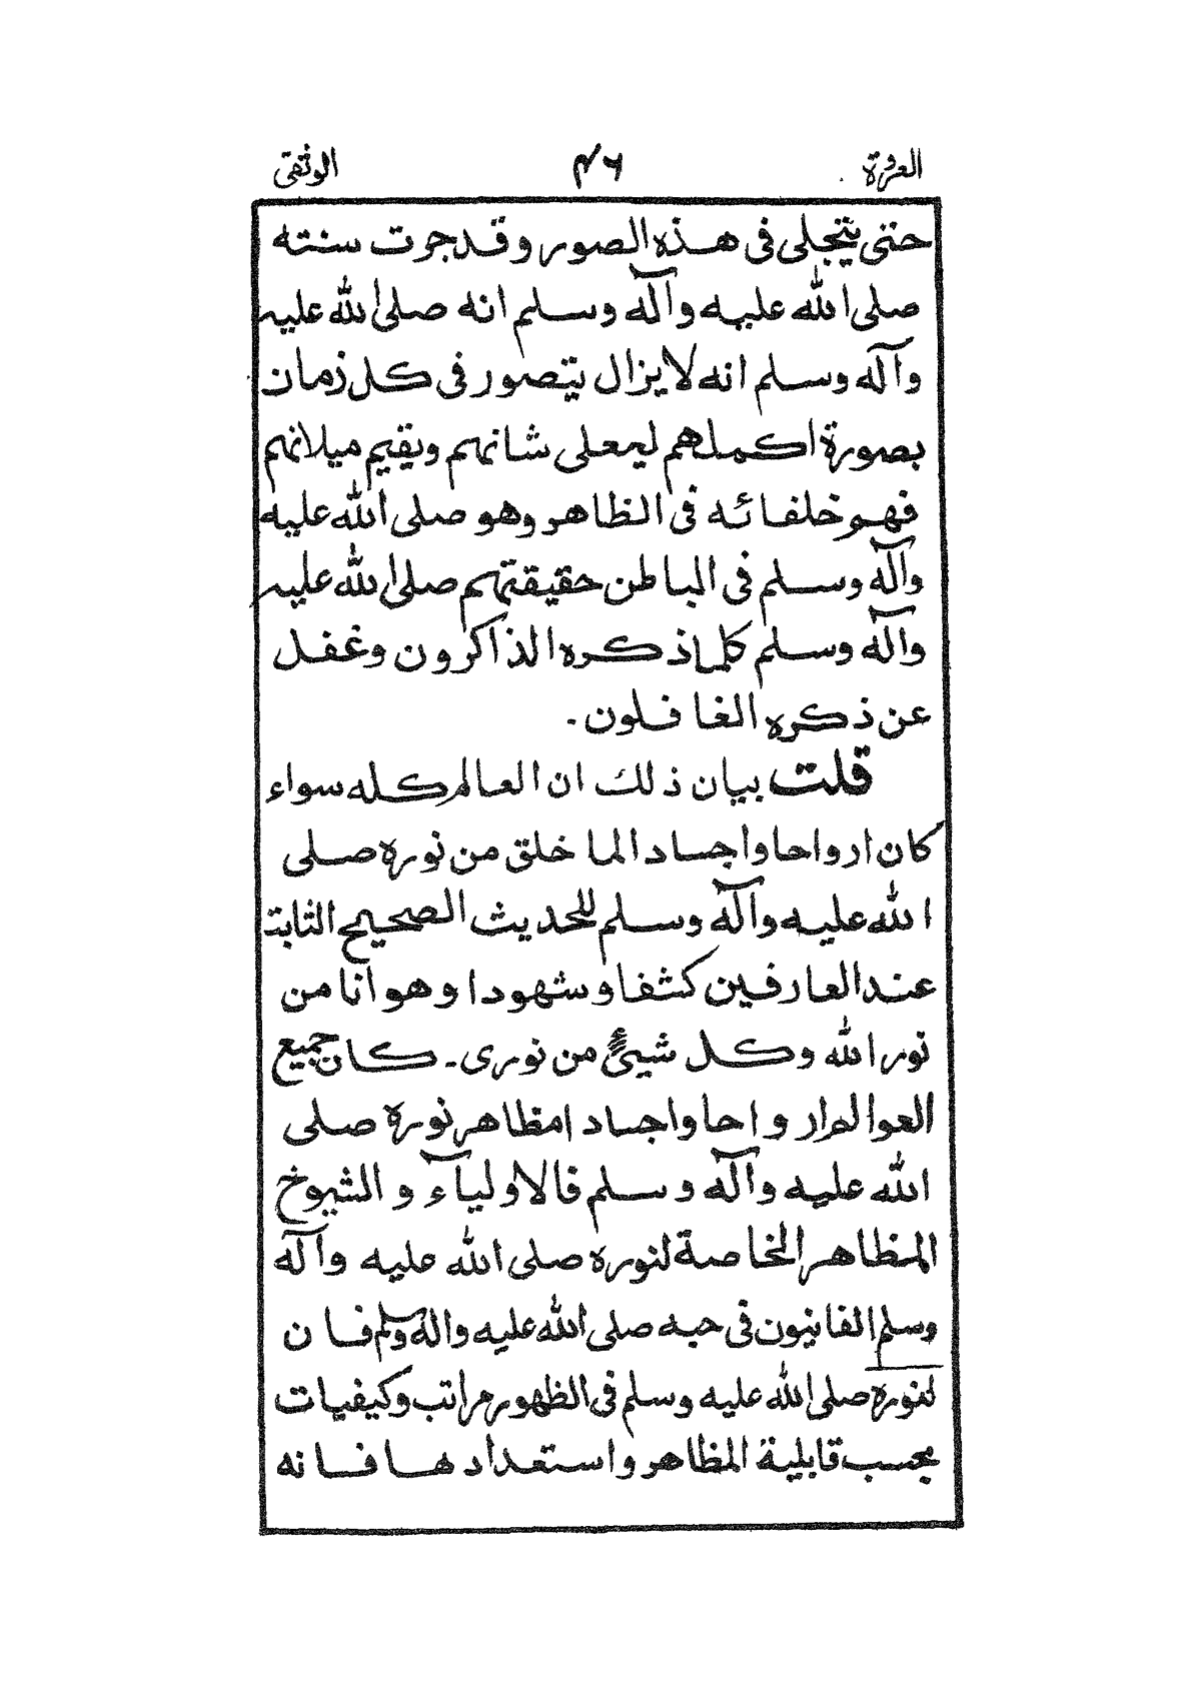 العروة ۴۶ الوثقى
حتى يتجلى فى هذه الصور وقد جرت سنته
صلى الله عليه وآله وسلم انه صلى الله عليه
وآله وسلم انه لا يزال يتصور فى كل زمان
بصورة اكملهم ليعلى شانهم ويقيم ميلانهم
فهم خلفائه فى الظاهر وهو صلى الله عليه
وآله وسلم فى الباطن حقيقتهم صلى الله عليه
وآله وسلم كلما ذكره الذاكرون وغفل
عن ذكره الغافلون۔
قلت بيان ذلك ان العالم كله سواء
كان ارواحا واجسادا لما خلق من نوره صلى
الله عليه وآله وسلم للحديث الصحيح الثابت
عند العارفين كشفا وشهودا وهو انا من
نور الله وكل شيئ من نورى۔ كان جميع
العوالم ارواحا واجسادا مظاهر نوره صلى
الله عليه وآله وسلم فالاولياء والشيوخ
المظاهر الخاصة لنوره صلى الله عليه وآله
وسلم الفانيون فى حبه صلى الله عليه واله وسلم فان
لنوره صلى الله عليه وسلم فى الظهور مراتب وكيفيات
بحسب قابلية المظاهر واستعدادها فانه